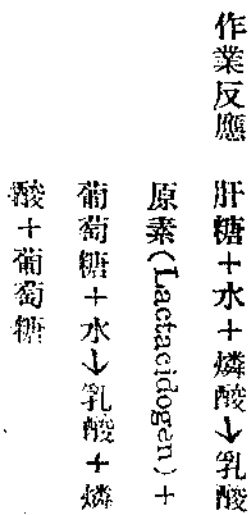 作業反應　肝糖＋水＋燐酸→乳酸
原素(Lactacidogen)＋
葡萄糖＋水→乳酸＋燐
酸＋葡萄糖